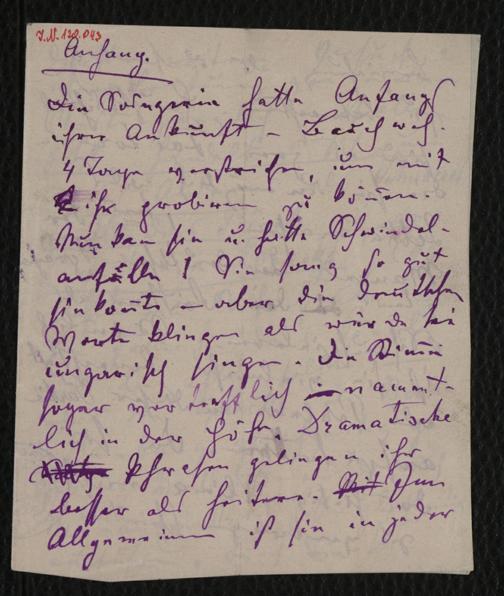 I.N. 122.043
Anfang.
Die Sängerin hatte Anfangs
ihrer Ankunft – Bauchweh.
4 Tage verstrichen, um mit
ihr probiren zu können.
Nun kam sie u. hatte Schwindel-
anfälle! Sie sang so gut
sie konnte – aber die deutschen
Worte klingen als würde sie
ungarisch singen. Die Stimme
sogar vortrefflich – nament-
lich in der Höhe. Dramatische
Phrasen gelingen ihr
besser als heitere. Im
Allgemeinen ist sie in jeder